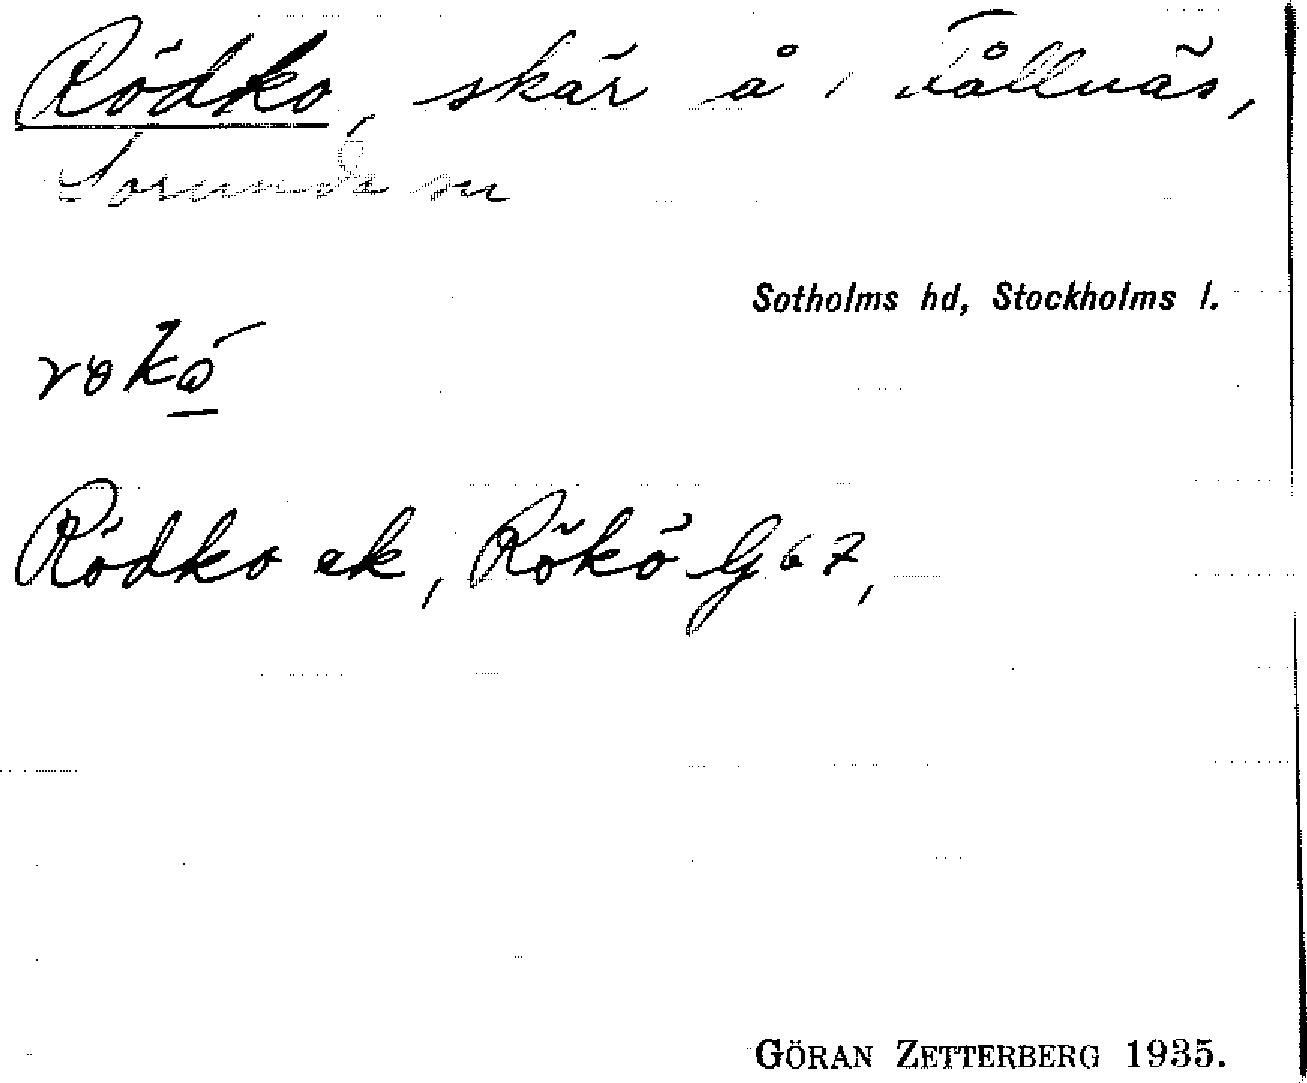 Rödko, skär å 1 Fållnäs,
Sorunda sn
Sotholms hd, Stockholms l.
Rödko ek, Rökö G 67,
GÖRAN ZETTERBERG 1935.